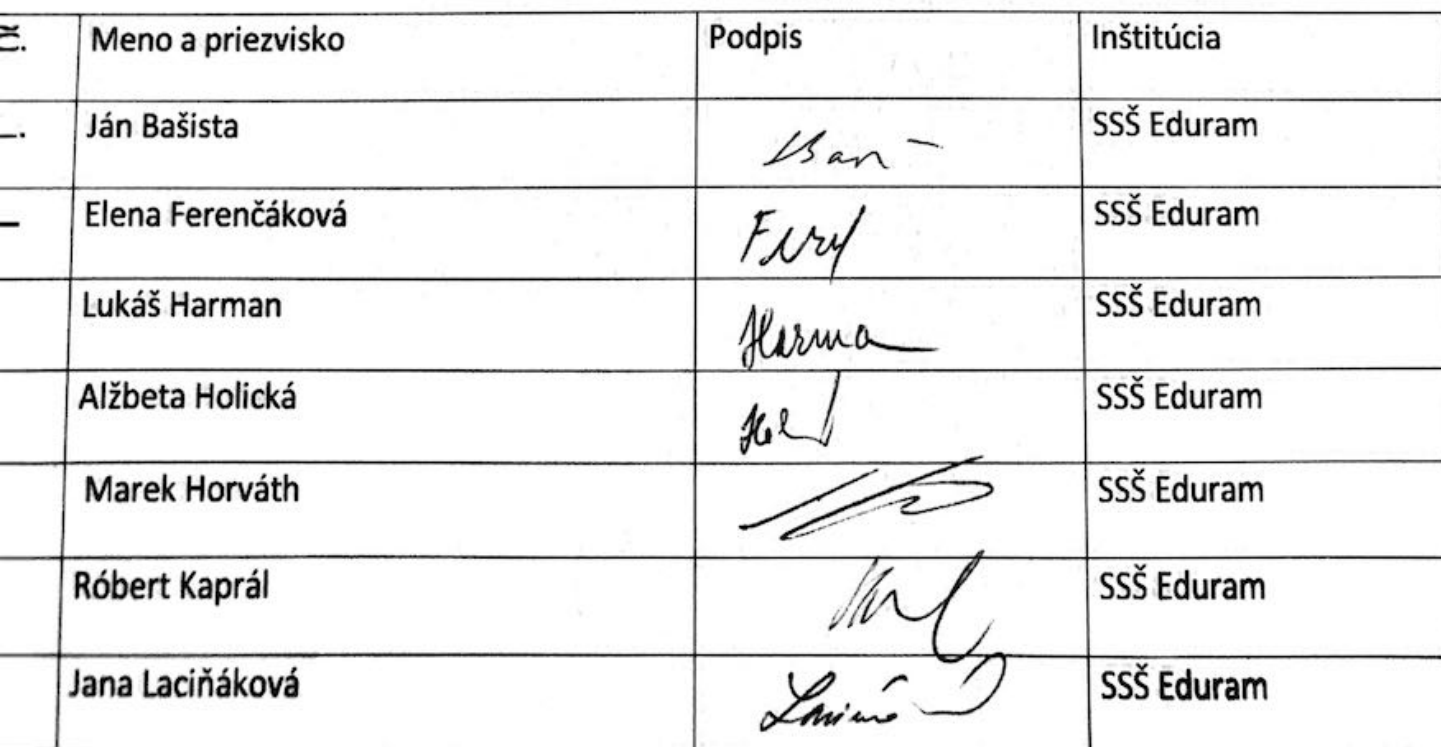 č. Meno a priezvisko Podpis Inštitúcia
Ján Bašista SSŠ Eduram
Elena Ferenčáková SSŠ Eduram
Lukáš Harman Harma SSŠ Eduram
Alžbeta Holická SSŠ Eduram
Marek Horváth SSŠ Eduram
Róbert Kaprál SSŠ Eduram
Jana Laciňáková SSŠ Eduram